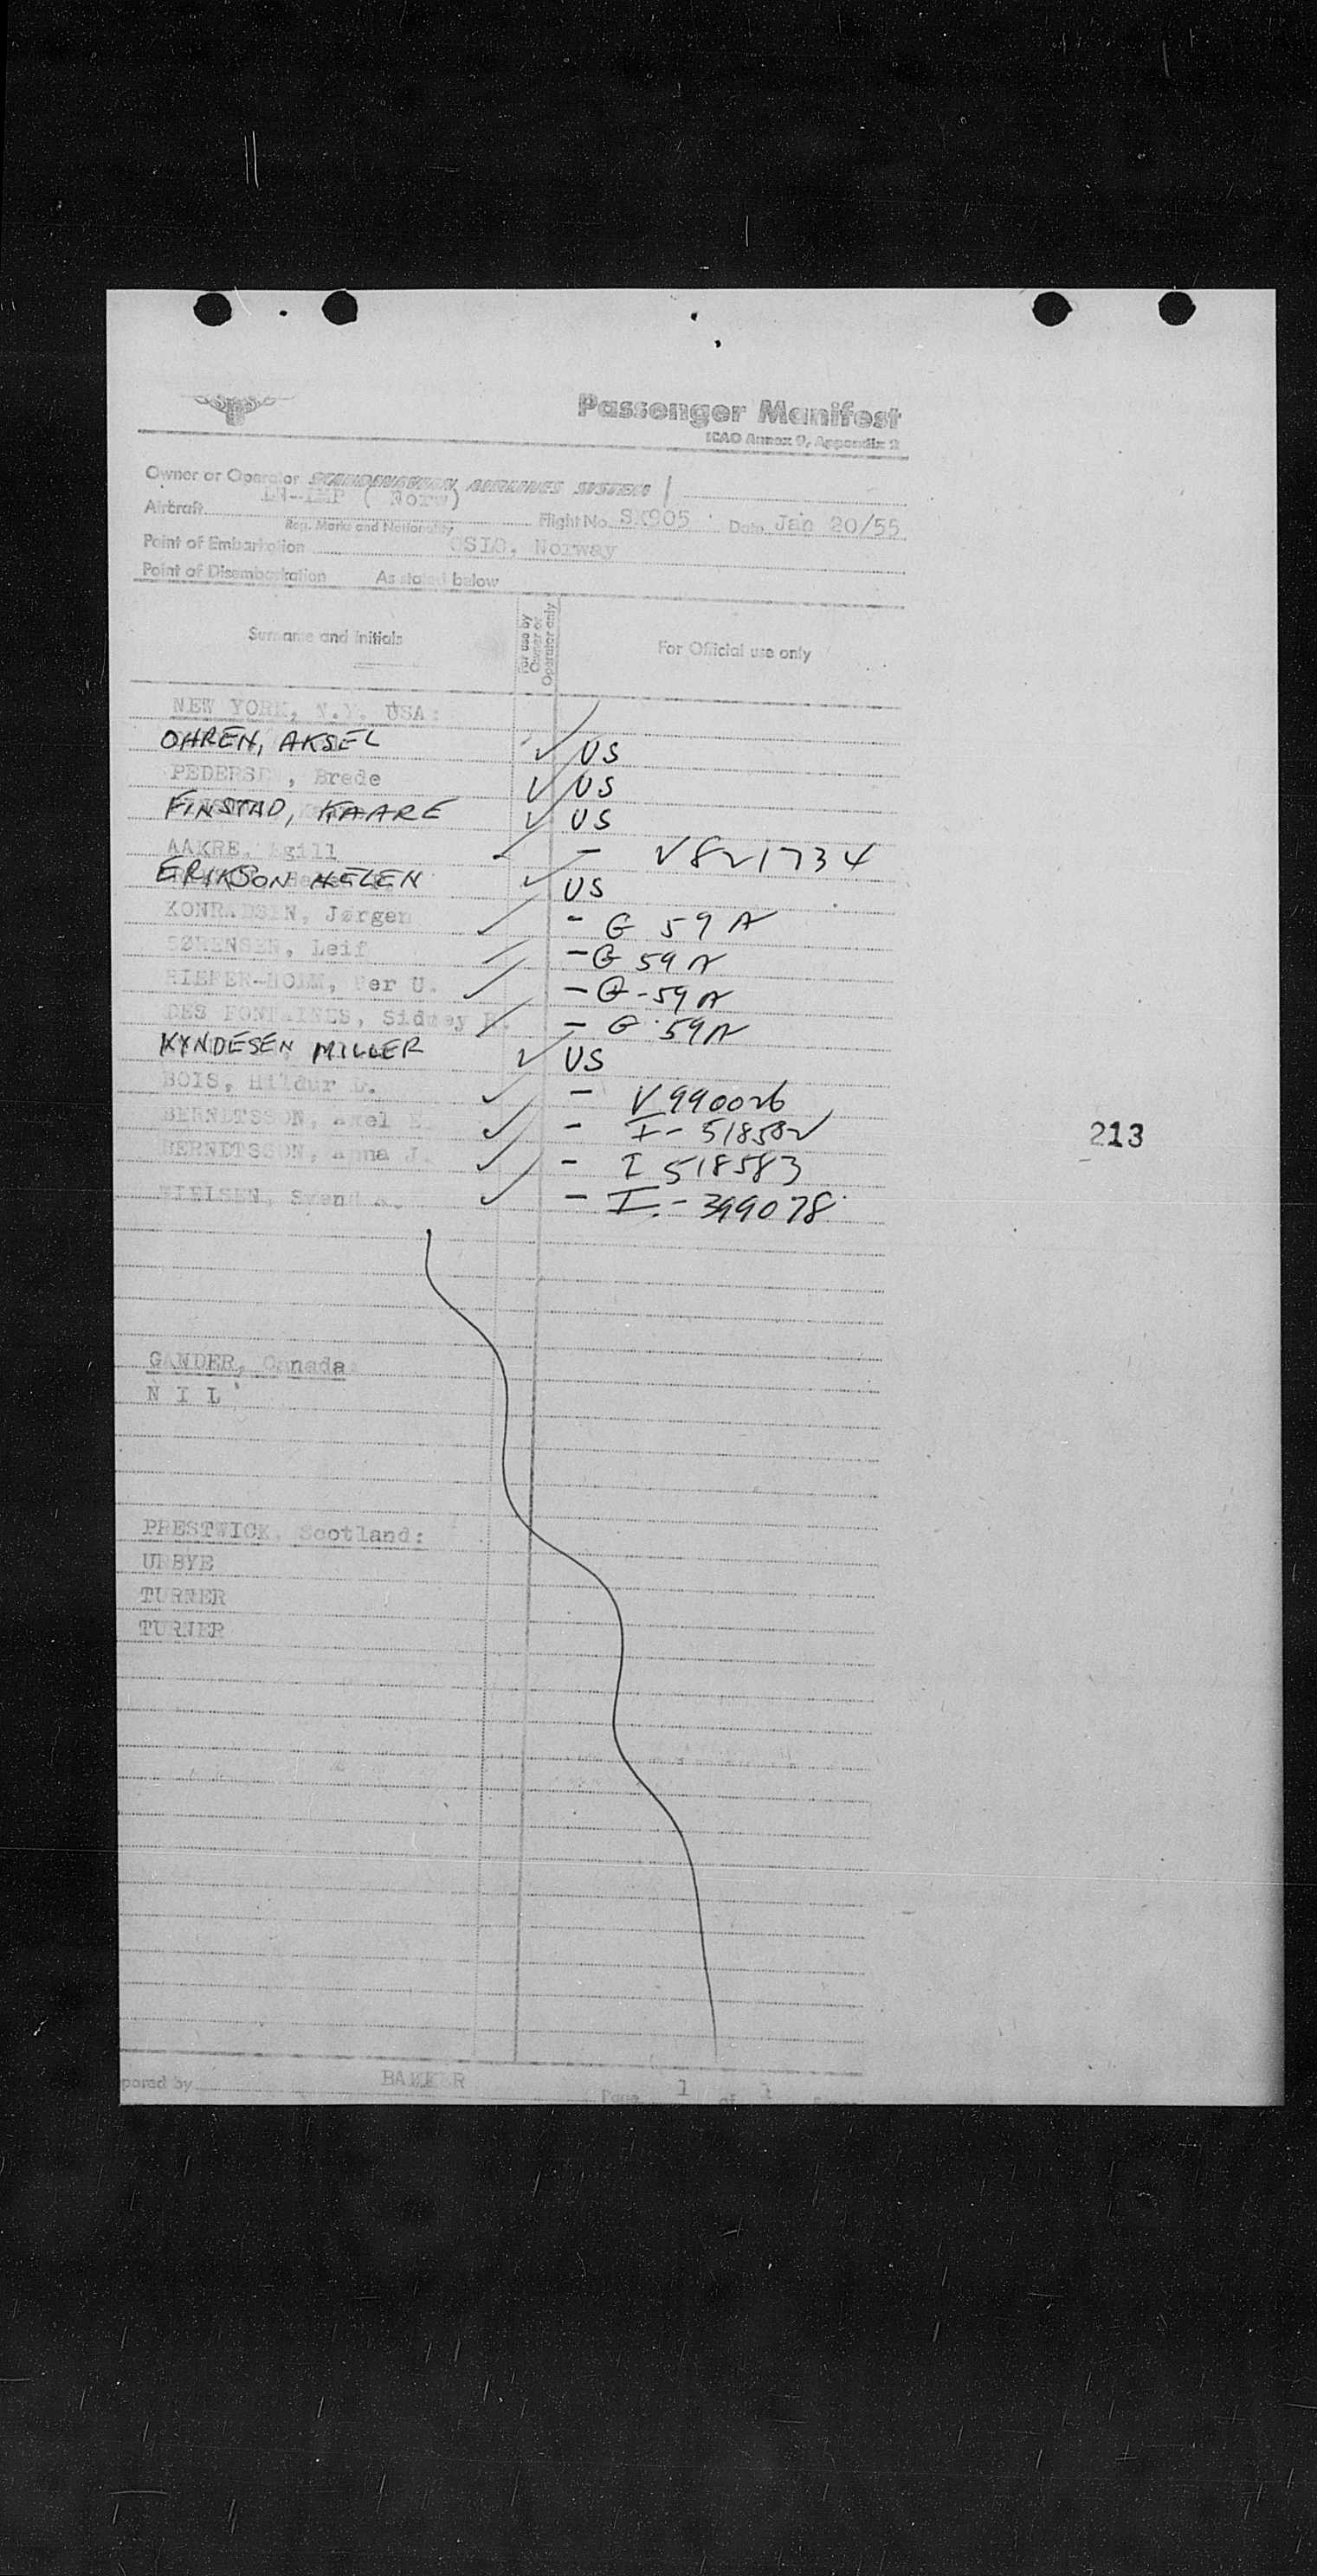 Passenger Manifest
ICAO Annex 9, Appendix 2
Owner or Operator SCANDINAVIAN AIRLINES SYSTEM
Aircraft ( Norw) Flight No. SK905 Date Jan 20/55
Reg. Marks and Nationality
Point of Embarkation OSLO, Norway
Point of Disembarkation As stated below
Surname and initials For use by Owner or Operator only For Official use only
NEW YORK, N.Y. USA:
OHREN, AKSEL US
PEDERSEN, Brede US
FINSTAD, KAARE US
AAKRE, Egill - V821734
ERIKSON HELEN US
KONRADSEN, Jørgen - G 59 A
SØRENSEN, Leif - G 59 A
RIEBER-HOLM, Per U. - G - 59 A
DES FONTAINES, Sidney - G 59 A
KYNDESEN MILLER US
BOIS, Hildur - V990026
BERNDTSSON, Axel E. - I - 518582
BERNDTSSON, Anna J. - I 518583
NIELSEN, Svend A. - I - 399078
213
GANDER, Canada
N I L
PRESTWICK, Scotland:
URBYE
TURNER
TURNER
pared by Page 1 of 1